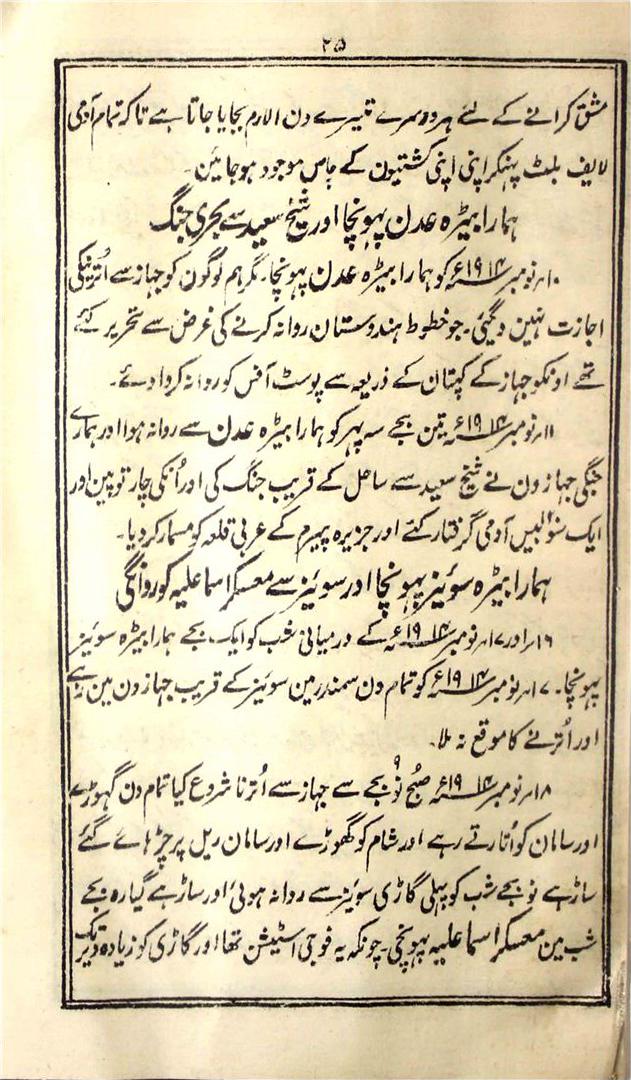 ۲۵
مشق کرانے کے لئے ہر دوسرے تیسرے دن الارم بجایا جاتا ہے تاکہ تمام آدمی
لایف بلٹ پہنکر اپنی اپنی کشتیون کے پاس موجود ہو جائین۔
ہمارا بیڑہ عدن پہونچا اور شیخ سعید سے بحری جنگ
۱۰؍ نومبر ۱۹۱۴ء کو ہمارا بیڑہ عدن پہونچا۔ مگر ہم لوگون کو جہاز سے اُترنیکی
اجازت نہین دیگئی۔ جو خطوط ہندوستان روانہ کرنے کی غرض سے تحریر کئے
تھے اونکو جہاز کے کپتان کے ذریعہ سے پوسٹ آفس کو روانہ کروا دئے۔
۱۱؍ نومبر ۱۹۱۴ء تین بجے سہ پہر کو ہمارا بیڑہ عدن سے روانہ ہوا اور ہمارے
جنگی جہازون نے شیخ سعید سے ساحل کے قریب جنگ کی اور اُنکی چار توپین اور
ایک سو آدمی گرفتار کئے اور جزیرہ پیرم کے عربی قلعہ کو مسمار کر دیا۔
ہمارا بیڑہ سوئیز پہونچا اور سوئیز سے معسکر اسماعلیہ کو روانگی
۱۶؍ اور ۱۷؍ نومبر ۱۹۱۴ء کے درمیانی شب کو ایک بجے ہمارا بیڑہ سوئیز
پہونچا۔ ۱۷؍ نومبر ۱۹۱۴ء کو تمام دن سمندر مین سوئیز کے قریب جہازون مین رہے
اور اُترنے کا موقع نہ ملا۔
۱۸؍ نومبر ۱۹۱۴ء صبح نو ۹ بجے سے جہاز سے اُترنا شروع کیا تمام دن گہوڑے
اور سامان کو اُتارتے رہے اور شام کو گھوڑے اور سامان ریل پر چڑہائے گئے
ساڑہے نو بجے شب کو پہلی گاڑی سوئیز سے روانہ ہوئی اور ساڑہے گیارہ بجے
شب مین معسکر اسماعلیہ پہونچی۔ چونکہ یہ فوجی اسٹیشن تھا اور گاڑی کو زیادہ دیر تک